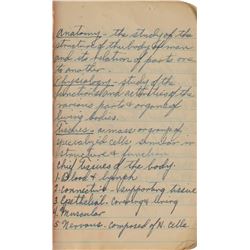 Anatomy - the study of the
structure of the body of man
and its relation of parts one
to another.
Physiology - study of the
functions and activities of the
various parts & organs of
living bodies.
Tissues - a mass or group of
specialized cells similar in
structure & function
Chief tissues of the body.
1. Blood & lymph
2. connective - supporting tissue
3. Epithelial - covering & lining
4. Muscular
5. Nervous - composed of N. cells